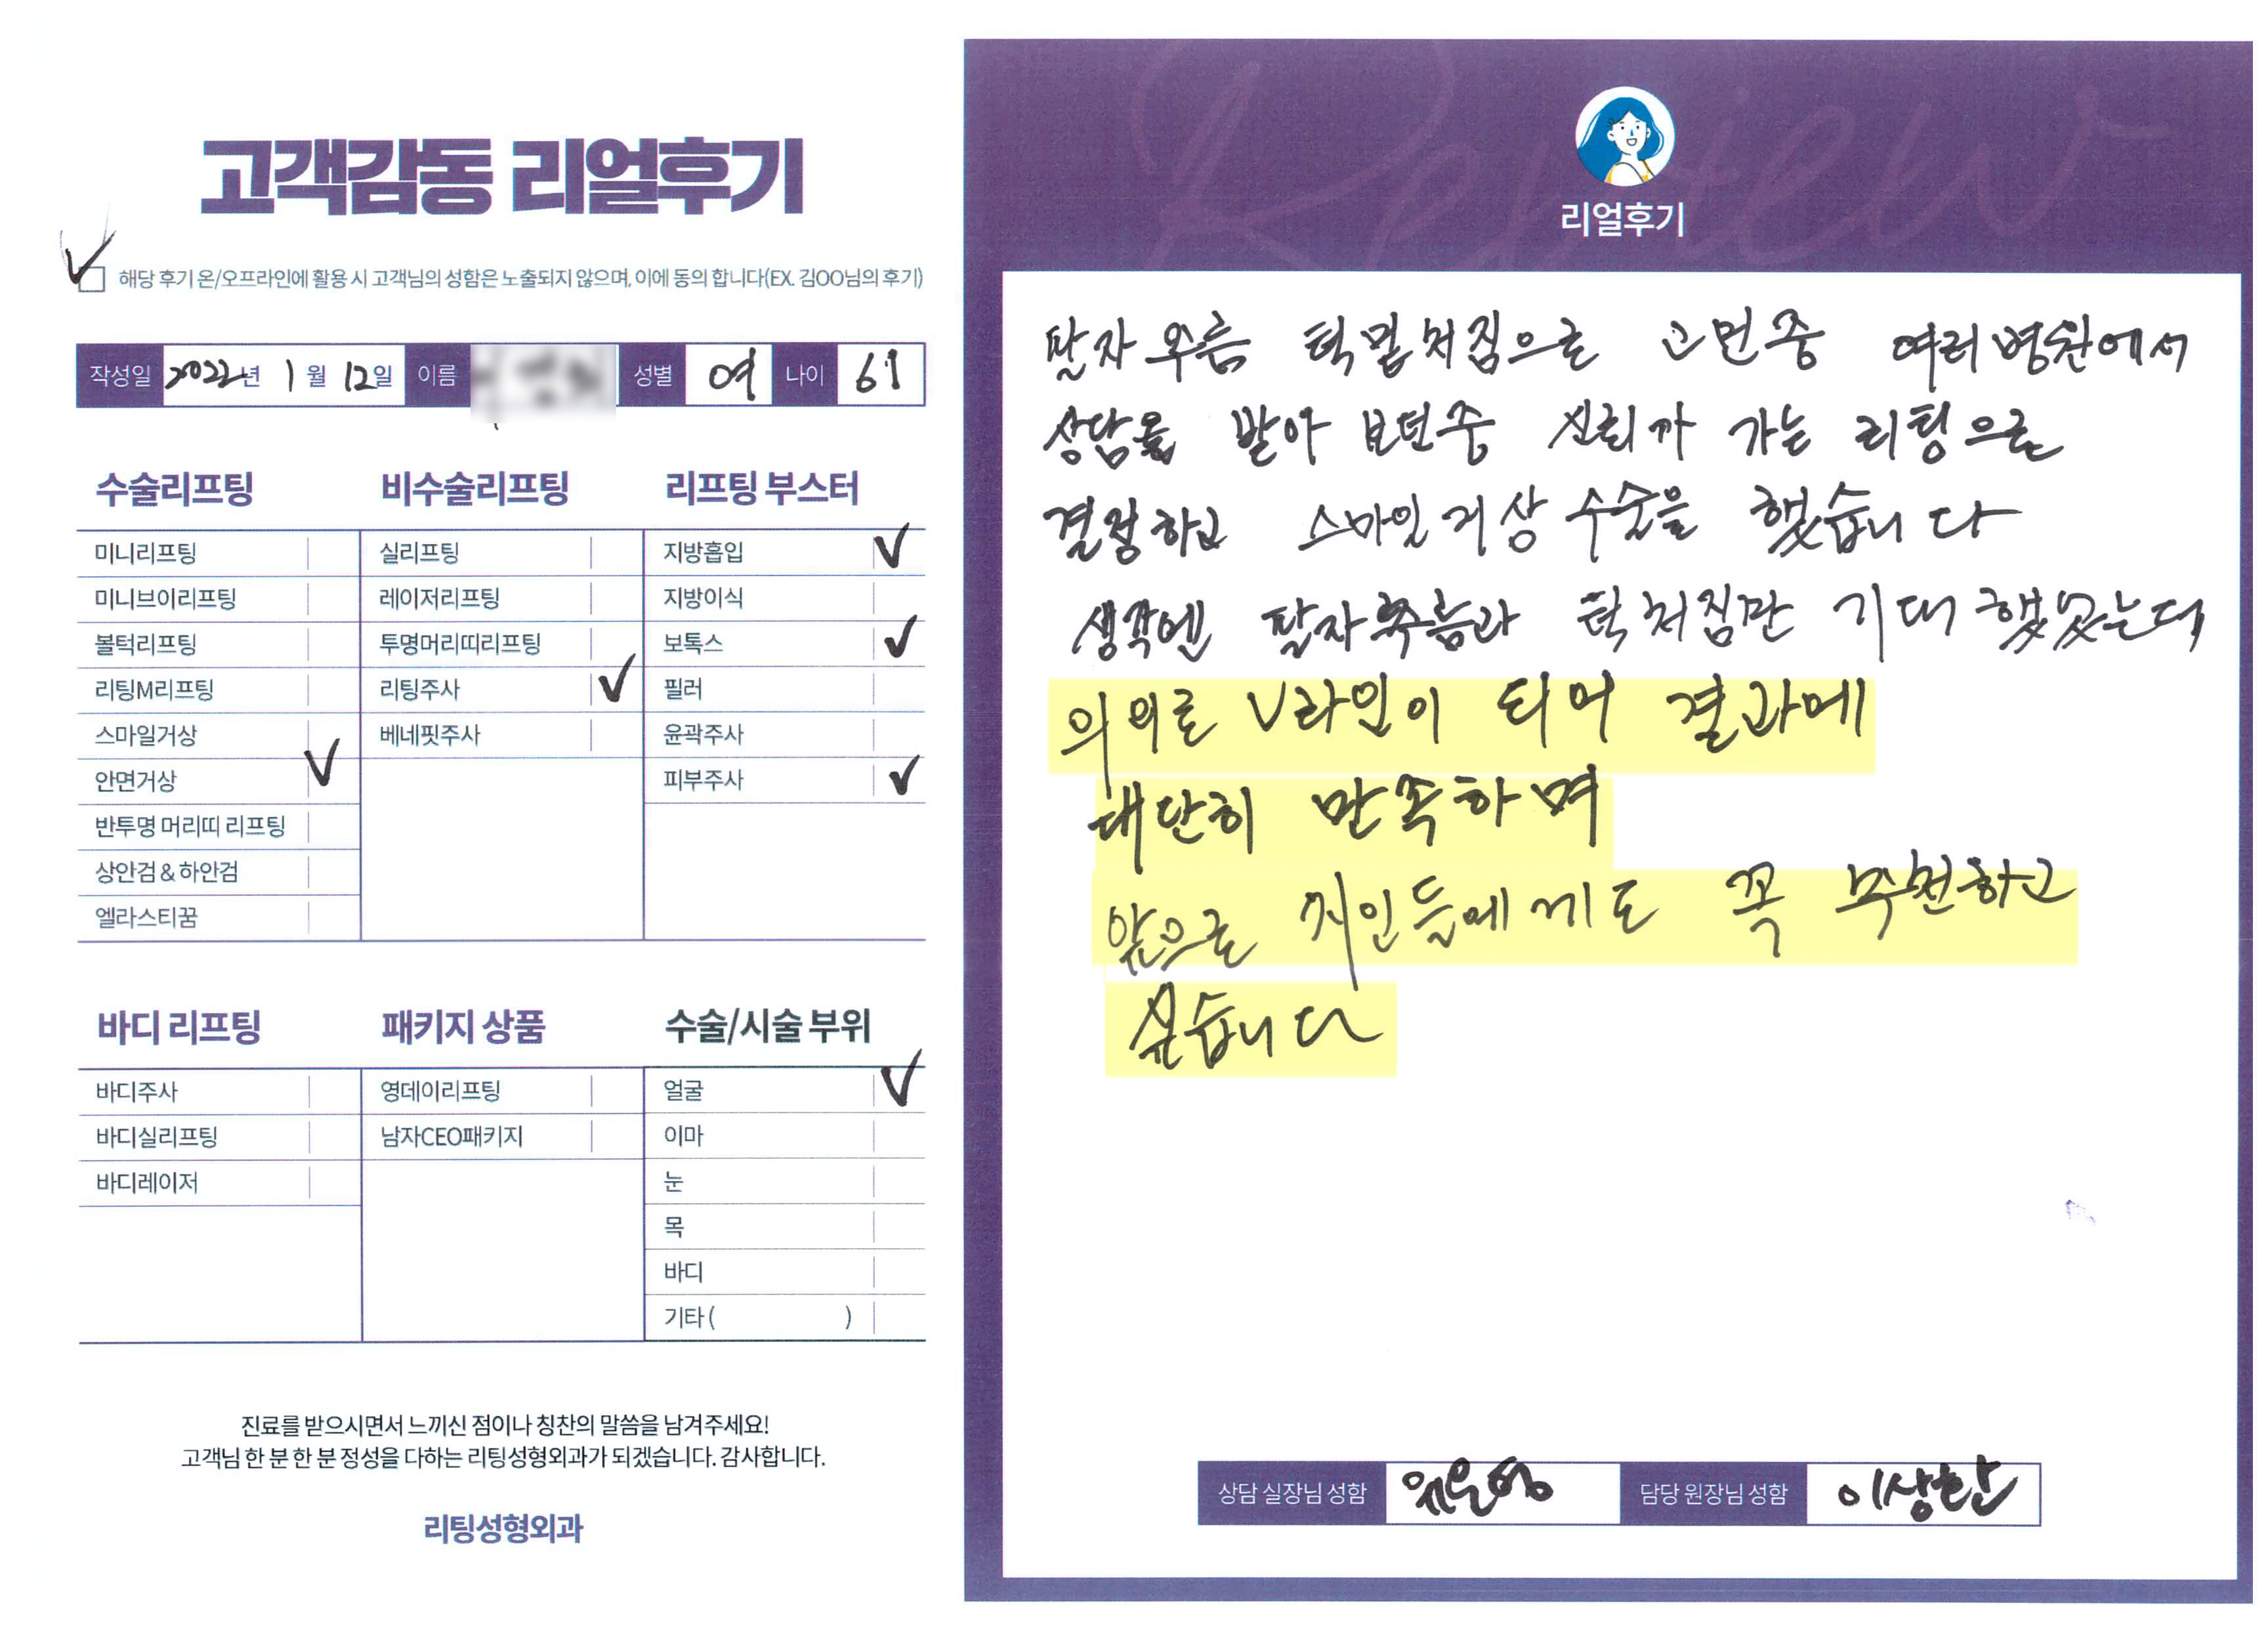 고객감동 리얼후기
해당 후기 온/오프라인에 활용 시 고객님의 성함은 노출되지 않으며, 이에 동의 합니다(EX. 김OO님의 후기)
작성일 2022년 1월 12일 이름 성별 여 나이 61
수술리프팅
미니리프팅
미니브이리프팅
볼턱리프팅
리팅M리프팅
스마일거상
안면거상
반투명 머리띠 리프팅
상안검 & 하안검
엘라스티꿈
비수술리프팅
실리프팅
레이저리프팅
투명머리띠리프팅
리팅주사
베네핏주사
리프팅 부스터
지방흡입
지방이식
보톡스
필러
윤곽주사
피부주사
바디 리프팅
바디주사
바디실리프팅
바디레이저
패키지 상품
영데이리프팅
남자CEO패키지
수술/시술 부위
얼굴
이마
눈
목
바디
기타 ( )
진료를 받으시면서 느끼신 점이나 칭찬의 말씀을 남겨주세요!
고객님 한 분 한 분 정성을 다하는 리팅성형외과가 되겠습니다. 감사합니다.
리팅성형외과
Review
리얼후기
팔자 주름 턱밑처짐으로 고민중 여러병원에서
상담을 받아 보던중 신뢰가 가는 리팅으로
결정하고 스마일거상 수술을 했습니다
생각엔 팔자주름과 턱처짐만 기대했었는데
의외로 V라인이 되어 결과에
대단히 만족하며
앞으로 지인들에게도 꼭 추천하고
싶습니다
상담 실장님 성함 담당 원장님 성함 이상환